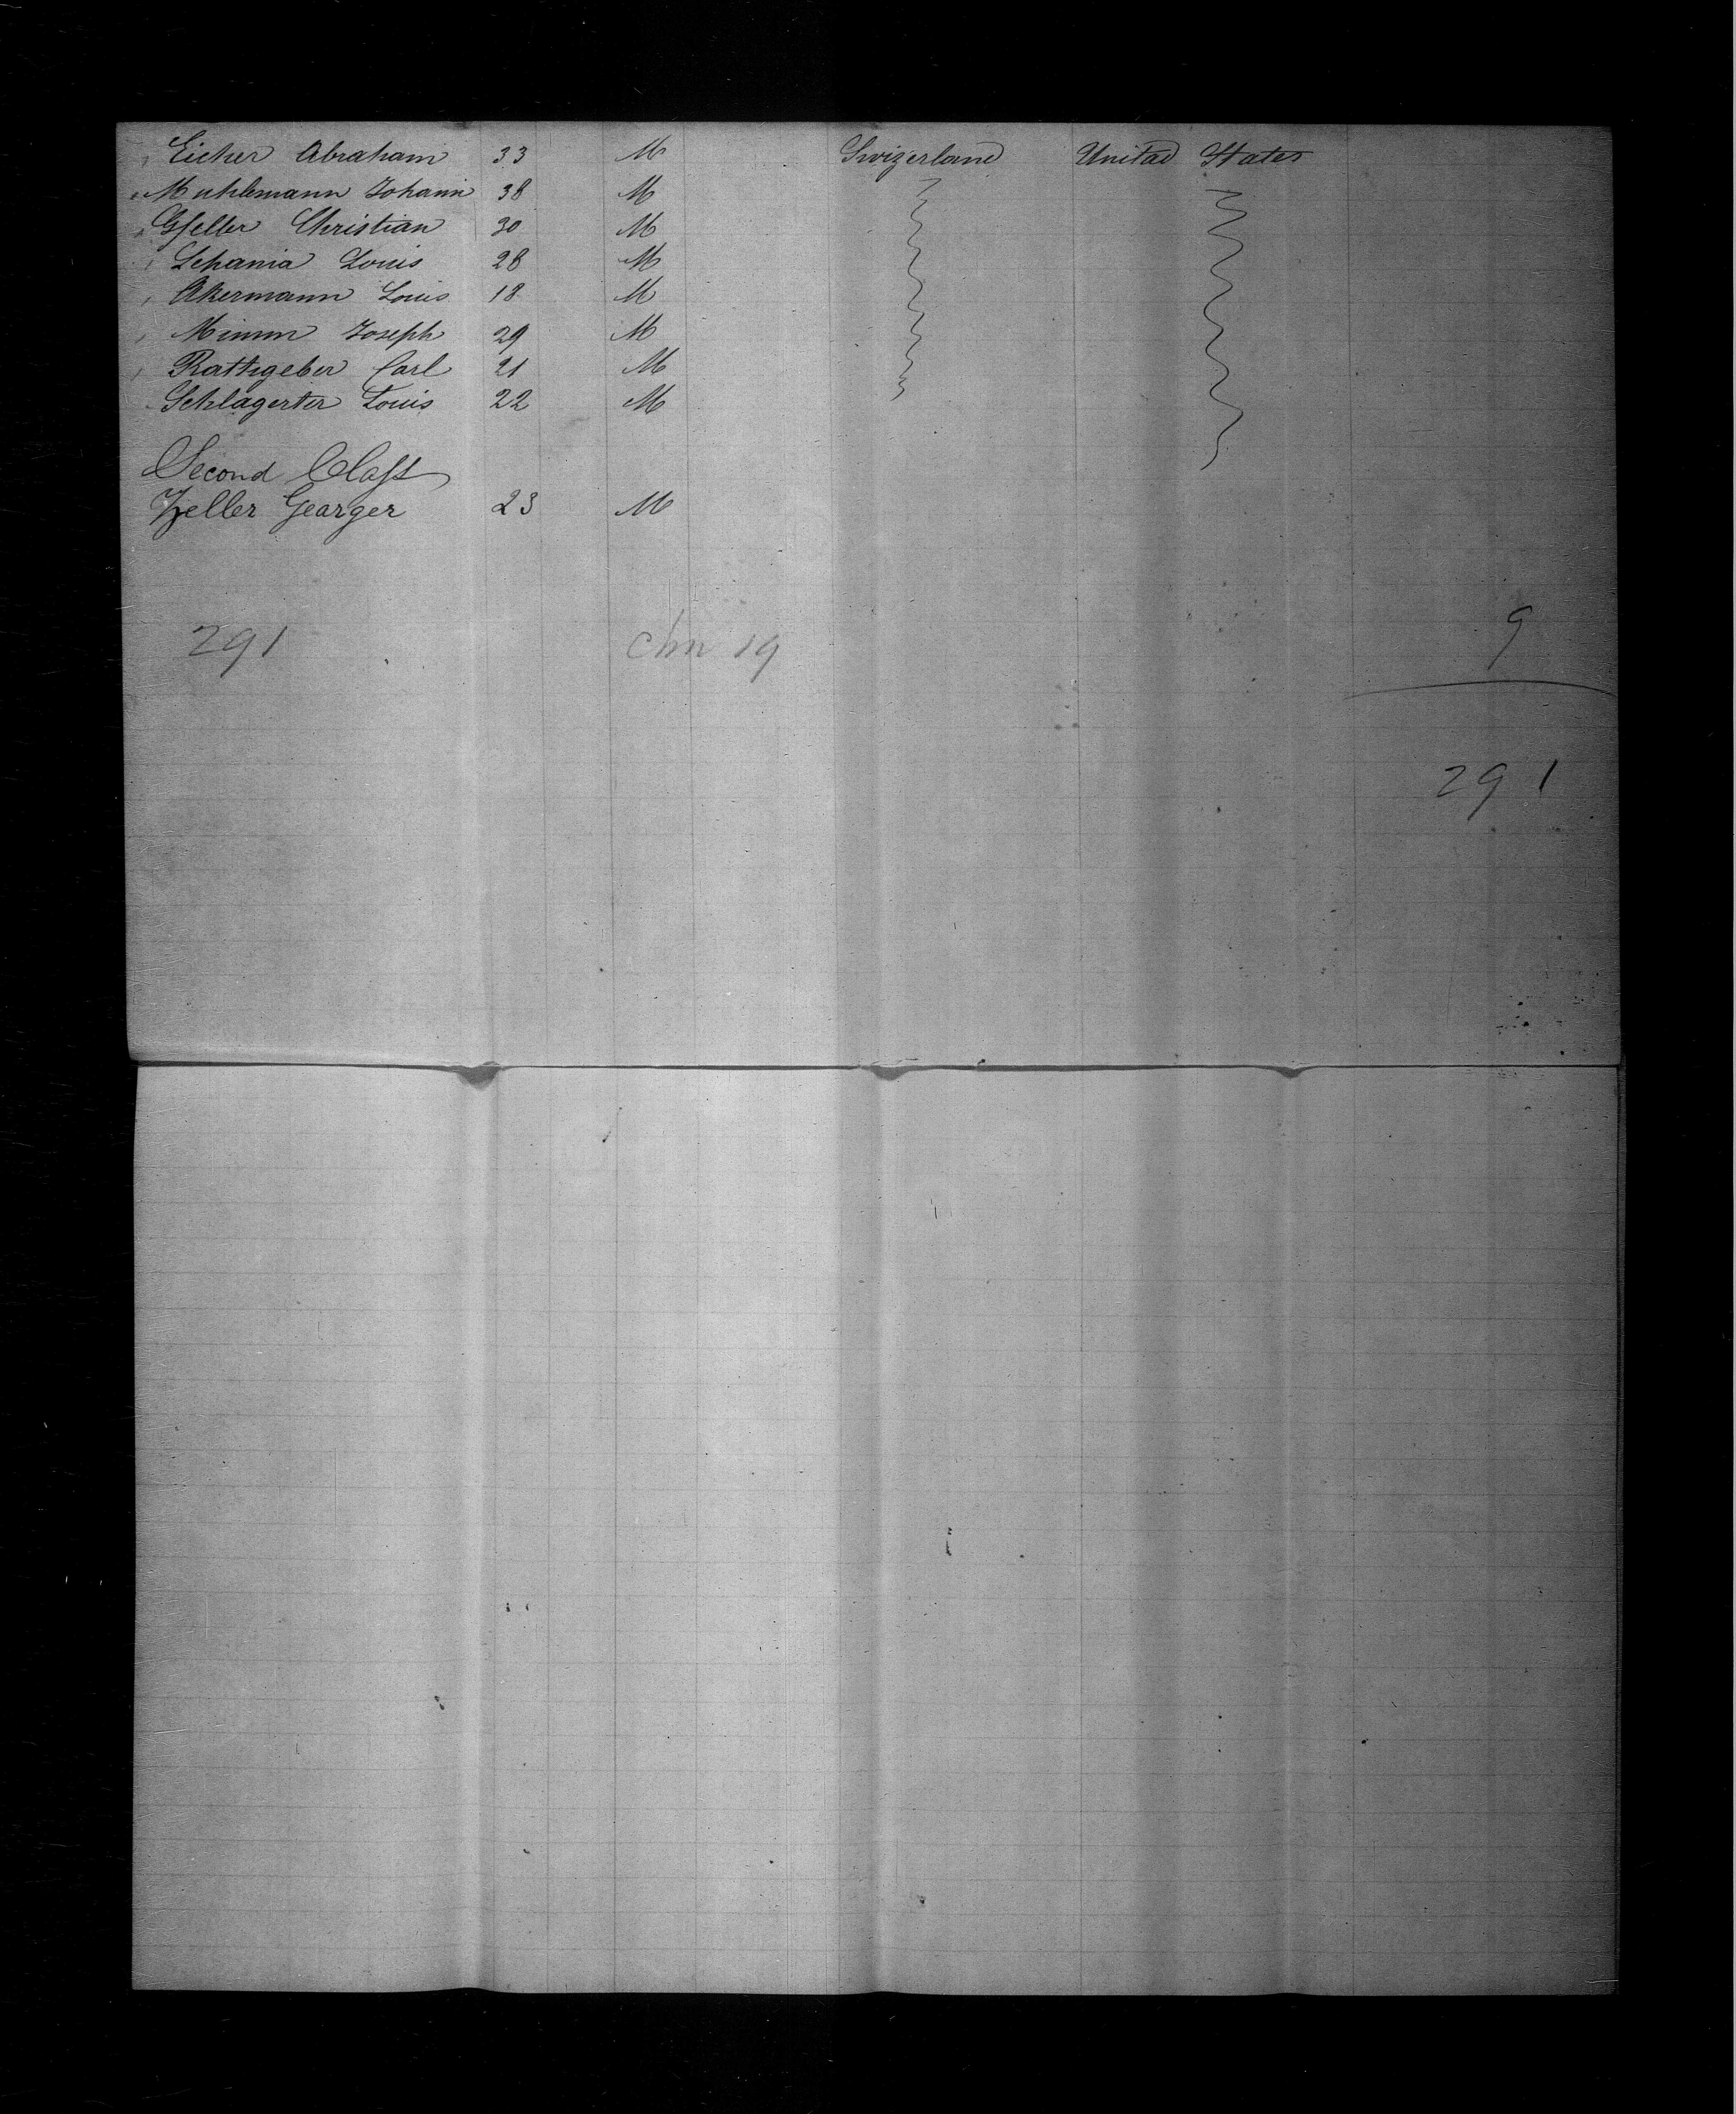 Eicher Abraham 33 M Swizerland United States
Muhlemann Johann 38 M
Gfeller Christian 30 M
Schania Louis 28 M
Akermann Louis 18 M
Mimm Joseph 29 M
Rathgeber Carl 21 M
Schlagerter Louis 22 M
Second Class
Zeller Gearger 23 M
9
291 chn 19
291